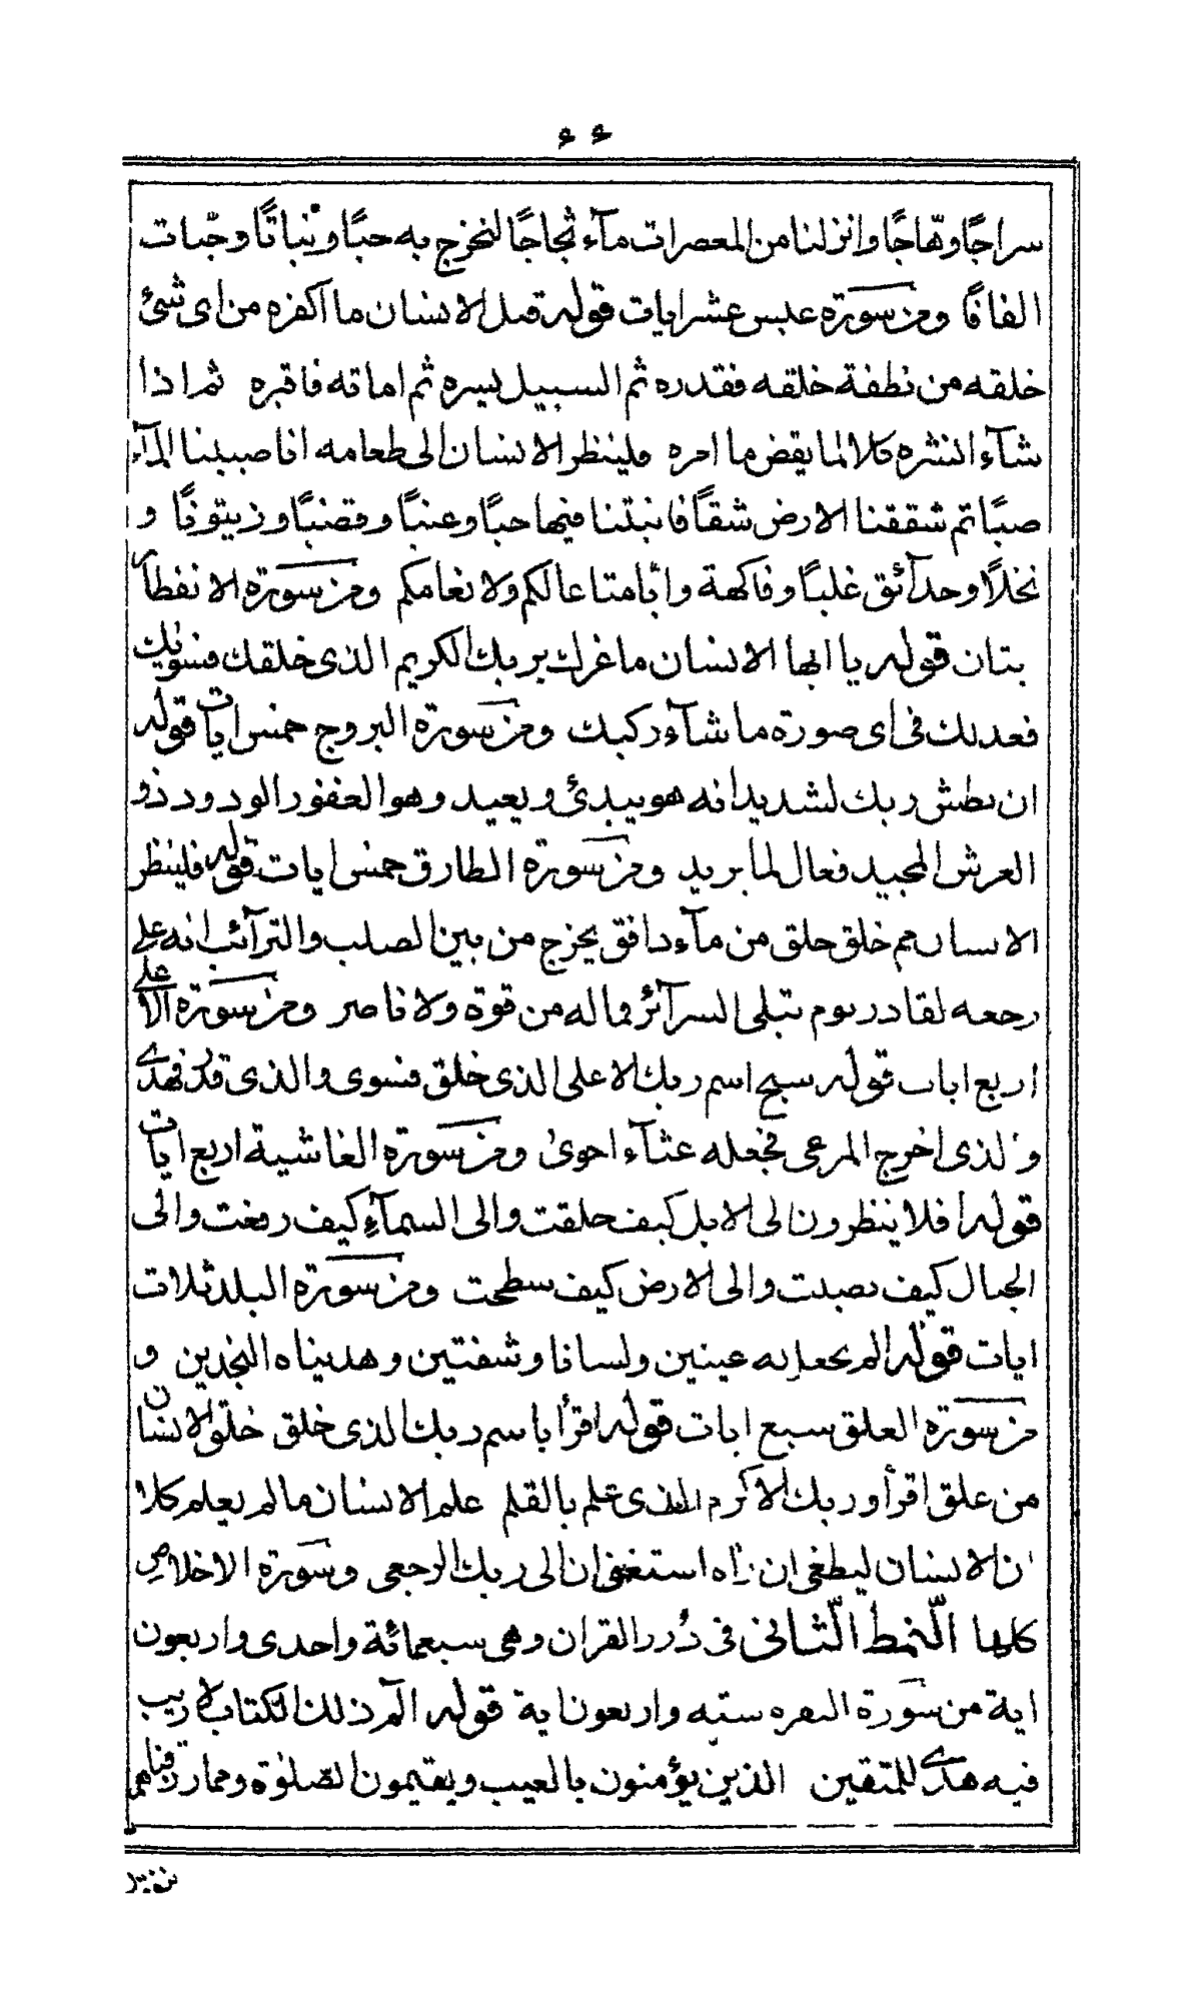 ٤٤
سراجًا وهّاجًا وانزلنا من المعصرات مآء ثجاجًا لنخرج به حبًا ونباتًا وجنات
الفافًا ومن سورة عبس عشر ايات قوله قتل الانسان ما اكفره من اى شئ
خلقه من نطفة خلقه فقدره ثم السبيل يسره ثم اماته فاقبره ثم اذا
شآء انشره كلا لما يقض ما امره فلينظر الانسان الى طعامه انا صببنا المآء
صبًا ثم شققنا الارض شقًا فانبتنا فيها حبًا وعنبًا وقضبًا وزيتونًا و
نخلًا وحدآئق غلبًا وفاكهة وابًا متاعا لكم ولانعامكم ومن سورة الانفطار
يتان قوله يا ايها الانسان ما غرك بربك الكريم الذى خلقك فسويك
فعدلك فى اى صورة ما شآء ركبك ومن سورة البروج خمس ايات قوله
ان بطش ربك لشديد انه هو يبدئ ويعيد وهو الغفور الودود ذو
العرش المجيد فعال لما يريد ومن سورة الطارق خمس ايات قوله فلينظر
الانسان مم خلق خلق من مآء دافق يخرج من بين الصلب والترآئب انه على
رجعه لقادر يوم تبلى السرآئر فما له من قوة ولا ناصر ومن سورة الاعلى
اربع ايات قوله سبح اسم ربك الاعلى الذى خلق فسوى والذى قدر فهدى
والذى اخرج المرعى فجعله غثآء احوى ومن سورة الغاشية اربع ايات
قوله افلا ينظرون الى الابل كيف خلقت والى السمآء كيف رفعت والى
الجبال كيف نصبت والى الارض كيف سطحت ومن سورة البلد ثلاث
ايات قوله الم نجعل له عينين ولسانا وشفتين وهديناه النجدين و
من سورة العلق سبع ايات قوله اقرأ باسم ربك الذى خلق خلق الانسان
من علق اقرأ وربك الاكرم الذى علم بالقلم علم الانسان ما لم يعلم كلا
ان الانسان ليطغى ان رآه استغنى ان الى ربك الرجعى وسورة الاخلاص
كلها النّمط الثّانى فى دُرر القران وهى سبعمائة واحدى واربعون
اية من سورة البقره ستة واربعون اية قوله الٓم ذلك الكتاب لا ريب
فيه هدى للمتقين الذين يؤمنون بالغيب ويقيمون الصّلوٰة ومما رزقناهم